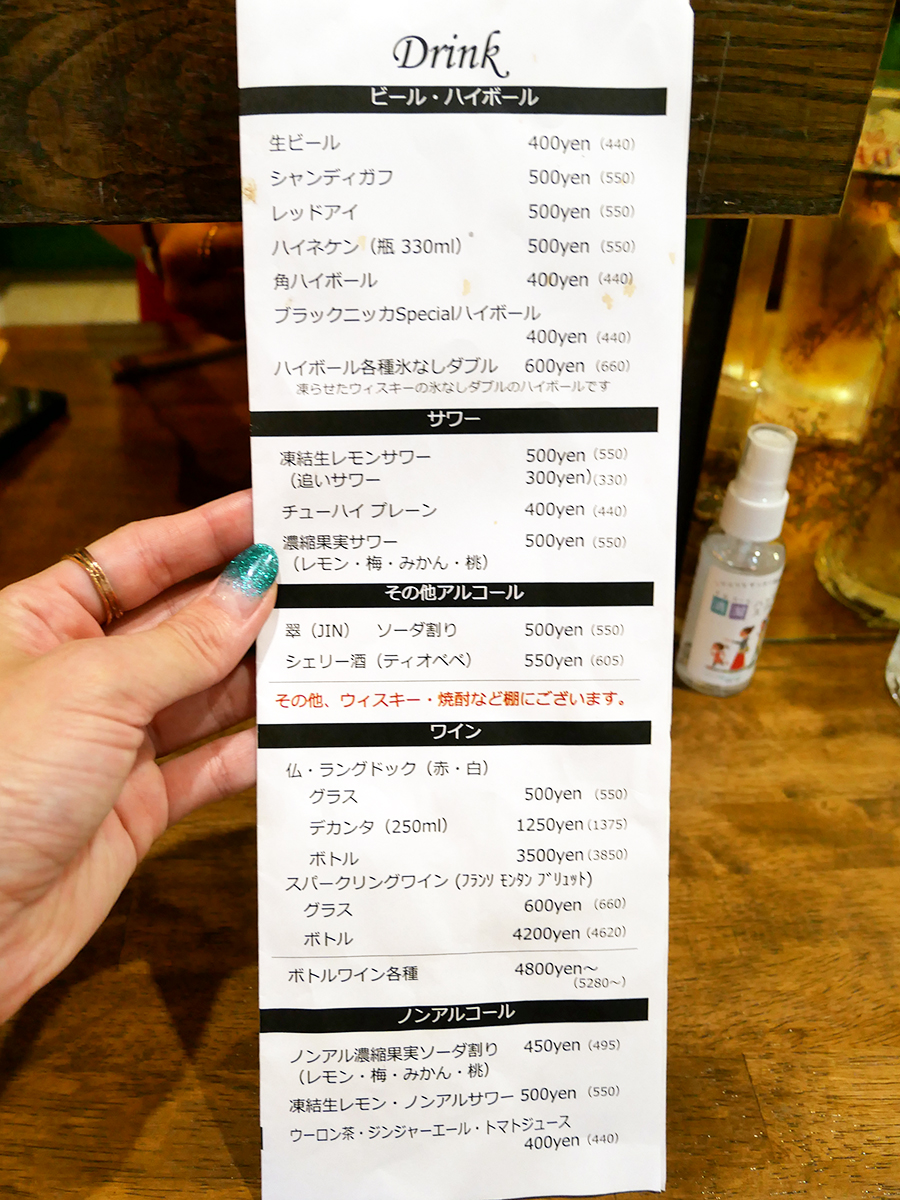 Drink
ビール・ハイボール
生ビール 400yen (440)
シャンディガフ 500yen (550)
レッドアイ 500yen (550)
ハイネケン（瓶 330ml） 500yen (550)
角ハイボール 400yen (440)
ブラックニッカSpecialハイボール
400yen (440)
ハイボール各種氷なしダブル 600yen (660)
凍らせたウィスキーの氷なしダブルのハイボールです
サワー
凍結生レモンサワー 500yen (550)
（追いサワー 300yen) (330)
チューハイ プレーン 400yen (440)
濃縮果実サワー 500yen (550)
（レモン・梅・みかん・桃）
その他アルコール
翠（JIN） ソーダ割り 500yen (550)
シェリー酒（ティオペペ） 550yen (605)
その他、ウィスキー・焼酎など棚にございます。
ワイン
仏・ラングドック（赤・白）
グラス 500yen (550)
デカンタ（250ml） 1250yen (1375)
ボトル 3500yen (3850)
スパークリングワイン (ﾌﾗﾝｿ ﾓﾝﾀﾝ ﾌﾞﾘｭｯﾄ)
グラス 600yen (660)
ボトル 4200yen (4620)
ボトルワイン各種 4800yen～
(5280～)
ノンアルコール
ノンアル濃縮果実ソーダ割り 450yen (495)
（レモン・梅・みかん・桃）
凍結生レモン・ノンアルサワー 500yen (550)
ウーロン茶・ジンジャーエール・トマトジュース
400yen (440)